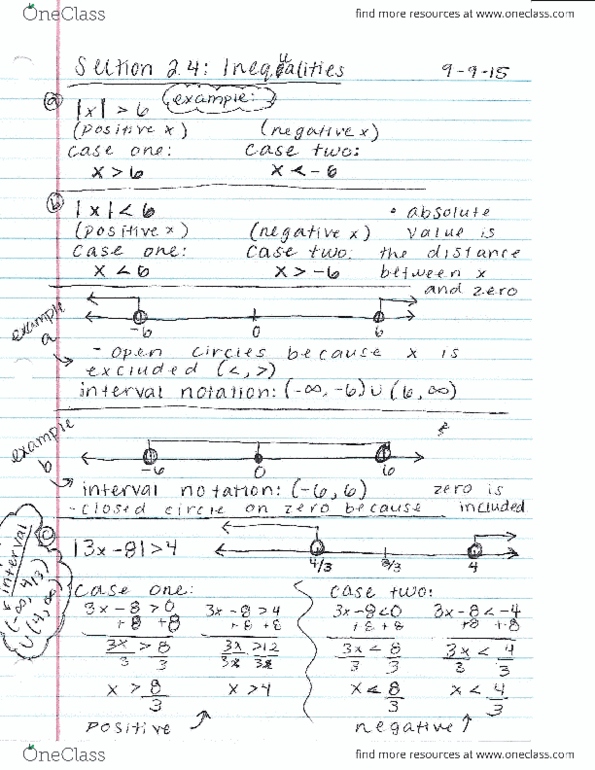 OneClass
find more resources at www.oneclass.com
Section 2.4: Inequalities 9-9-15
a |x| > 6 example:
(positive x) (negative x)
case one: case two:
x > 6 x < -6
b |x| < 6 • absolute
(positive x) (negative x) value is
case one: case two: the distance
x < 6 x > -6 between x
and zero
example a
-6 0 6
- open circles because x is
excluded (<, >)
interval notation: (-∞, -6) ∪ (6, ∞)
example b
-6 0 6
interval notation: (-6, 6) zero is
- closed circle on zero because included
|3x - 8| > 4
4/3 8/3 4
interval
(-∞, 4/3)
∪ (4, ∞)
case one: case two:
3x - 8 > 0 3x - 8 > 4 3x - 8 < 0 3x - 8 < -4
+8 +8 +8 +8 +8 +8 +8 +8
3x/3 > 8/3 3x/3 > 12/3 3x/3 < 8/3 3x/3 < 4/3
x > 8/3 x > 4 x < 8/3 x < 4/3
positive negative
OneClass
find more resources at www.oneclass.com